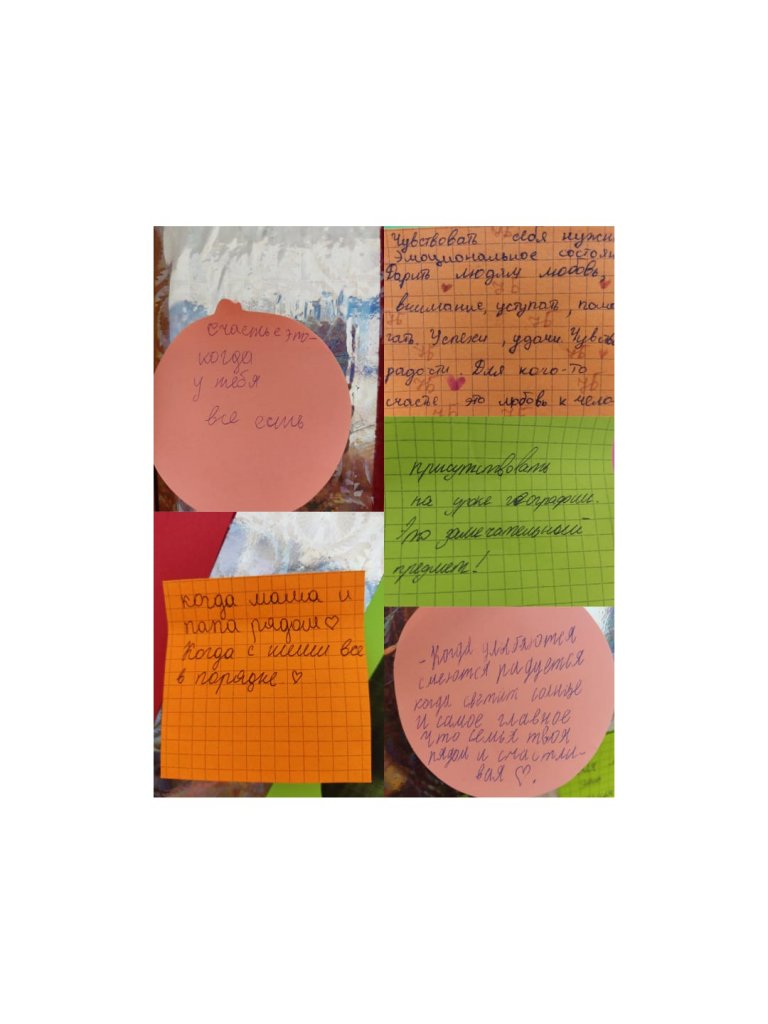 счастье это-
когда
у тебя
все есть
Чувствовать себя нужн
Эмоциональное состоян
Дарить людям любовь,
внимание, уступать, помо
гать. Успехи, удачи. Чувств
радости. Для кого-то
счастье это любовь к чело
присутствовать
на уроке географии.
Это замечательный
предмет!
когда мама и
папа рядом♡
Когда с ними все
в порядке ♡
- Когда улыбаются
смеются радуется
когда светит солнце
и самое главное
что семья твоя
рядом и счастли-
вая ♡.